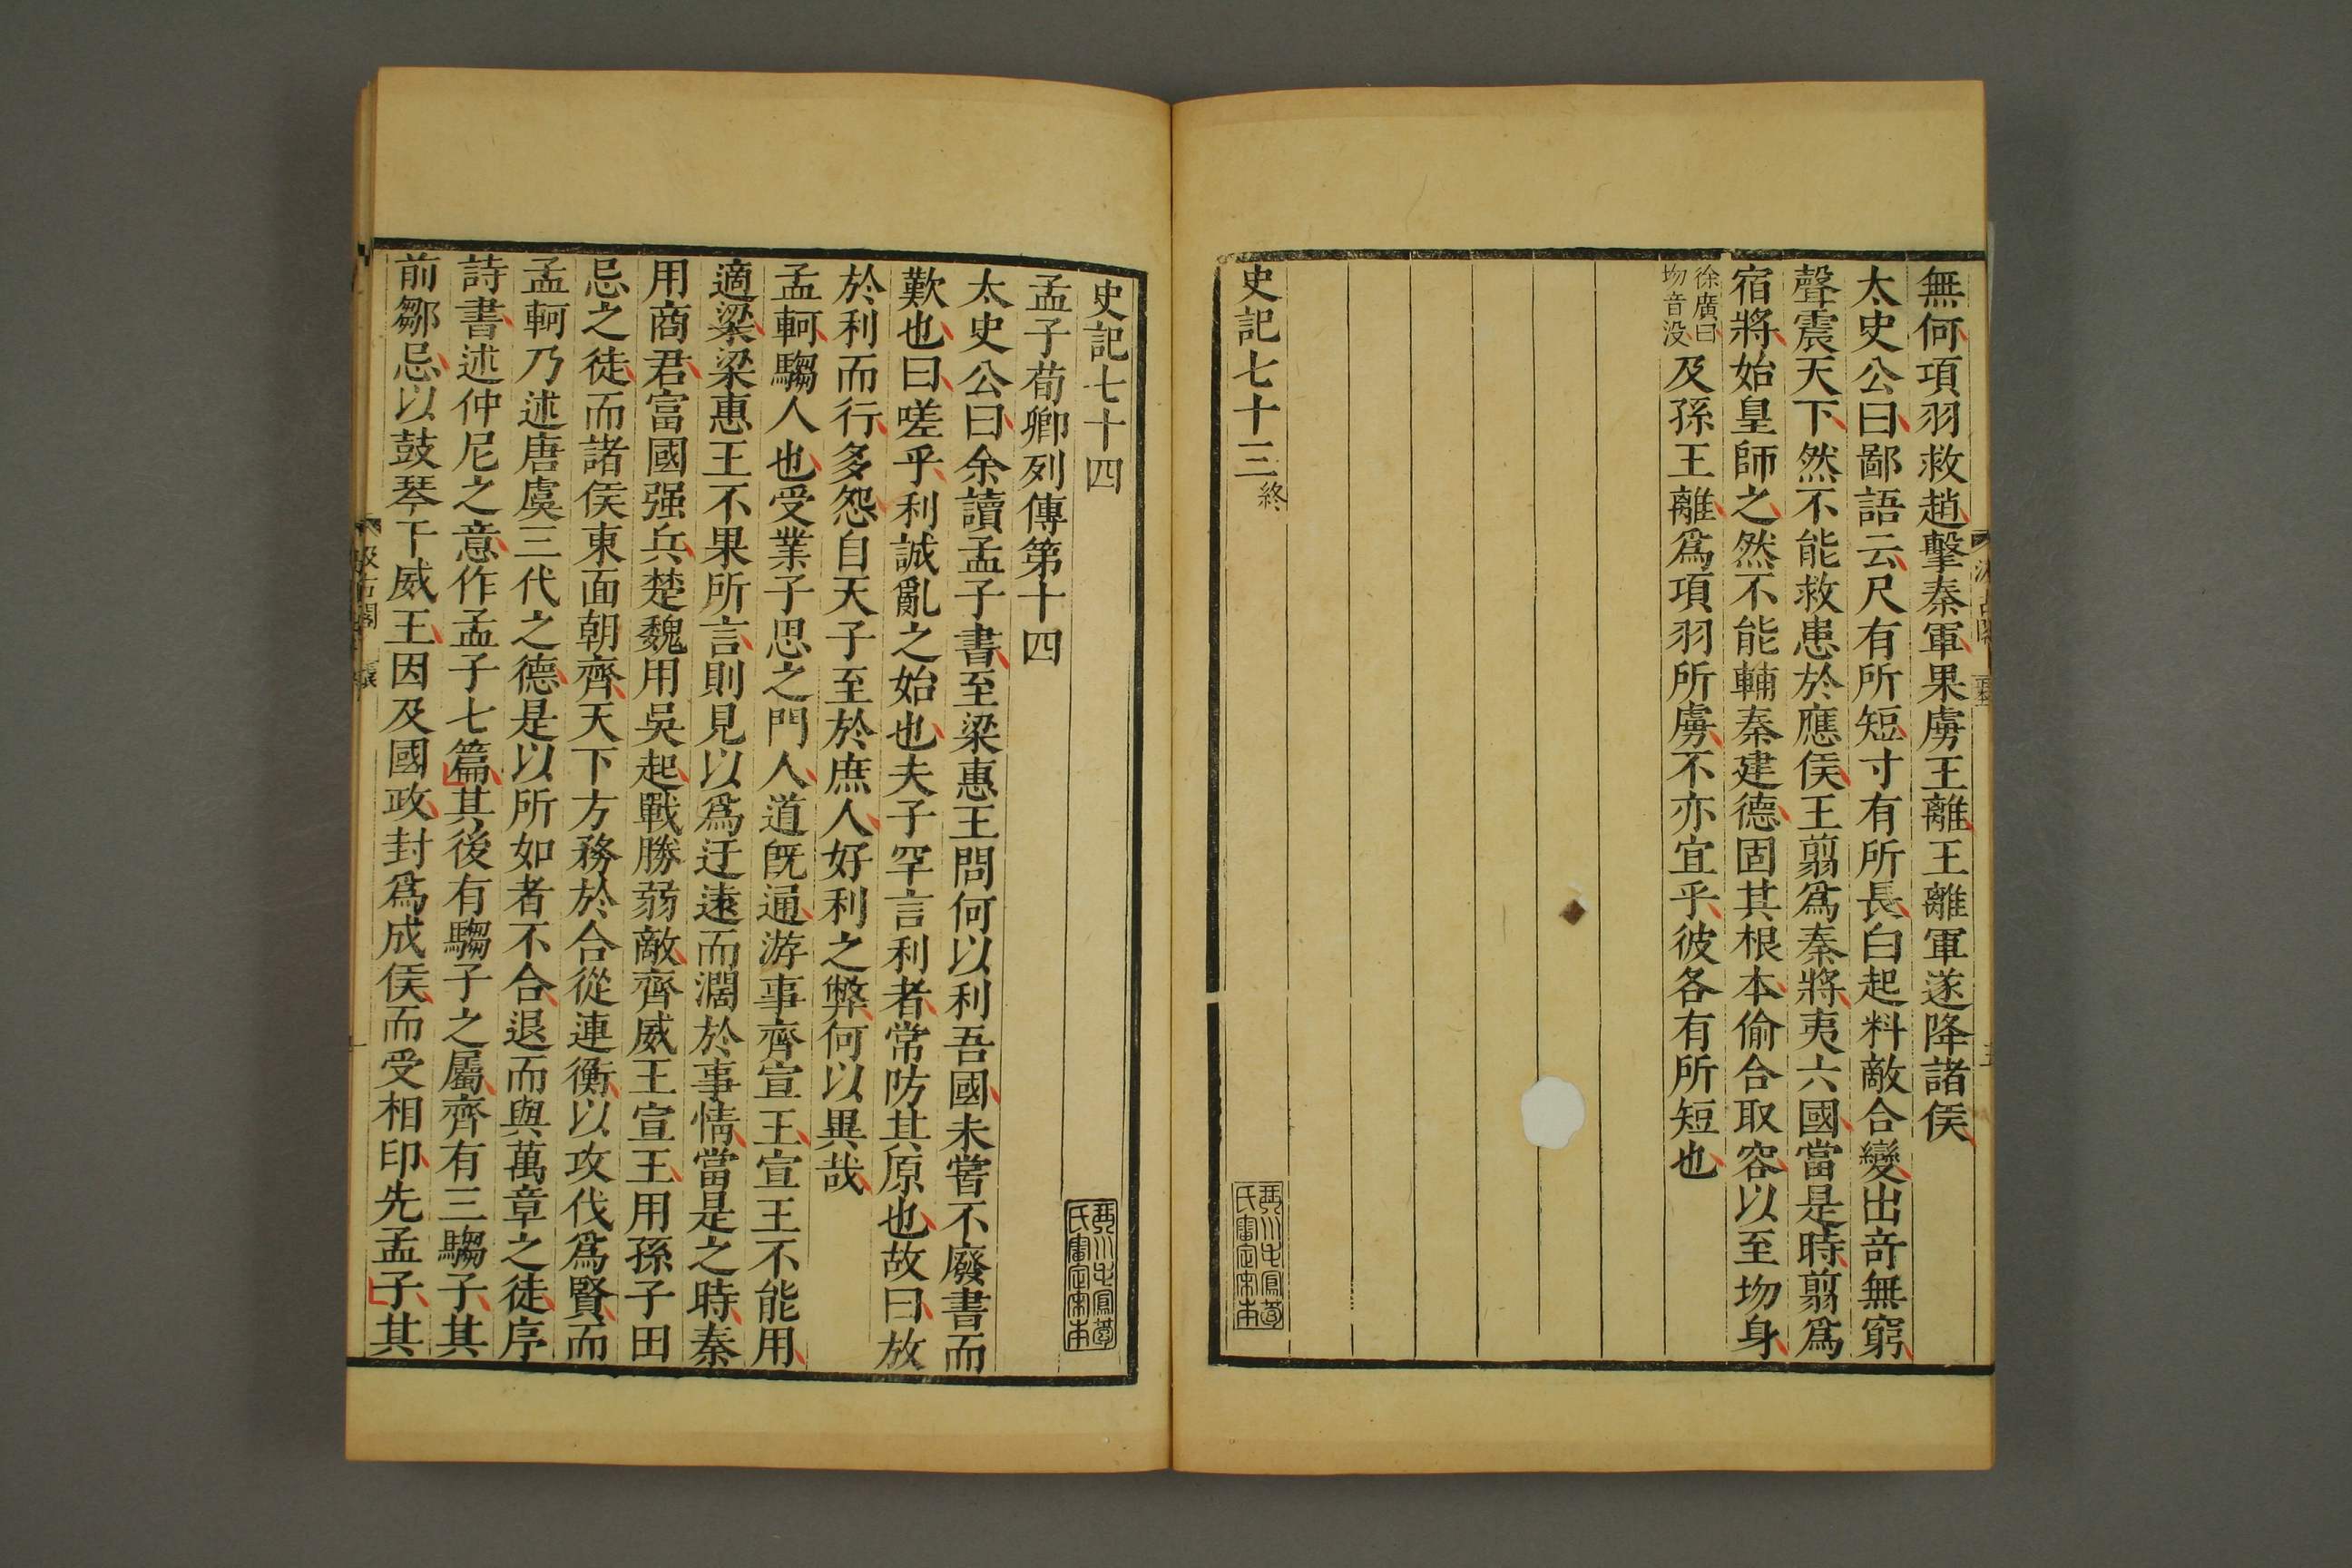 無何項羽救趙擊秦軍果虜王離王離軍遂降諸侯
太史公曰鄙語云尺有所短寸有所長白起料敵合變出竒無窮
聲震天下然不能救患於應侯王翦爲秦將夷六國當是時翦爲
宿將始皇師之然不能輔秦建德固其根本偷合取容以至圽身
徐廣曰
圽音没
及孫王離爲項羽所虜不亦宜乎彼各有所短也
史記七十三終
史記七十四
孟子荀卿列傳第十四
太史公曰余讀孟子書至梁惠王問何以利吾國未嘗不廢書而
歎也曰嗟乎利誠亂之始也夫子罕言利者常防其原也故曰放
於利而行多怨自天子至於庶人好利之弊何以異哉
孟軻騶人也受業子思之門人道旣通游事齊宣王宣王不能用
適梁梁惠王不果所言則見以爲迂遠而濶於事情當是之時秦
用商君富國强兵楚魏用吳起戰勝弱敵齊威王宣王用孫子田
忌之徒而諸侯東面朝齊天下方務於合從連衡以攻伐爲賢而
孟軻乃述唐虞三代之德是以所如者不合退而與萬章之徒序
詩書述仲尼之意作孟子七篇其後有騶子之屬齊有三騶子其
前鄒忌以鼓琴干威王因及國政封爲成侯而受相印先孟子其
汲古閣